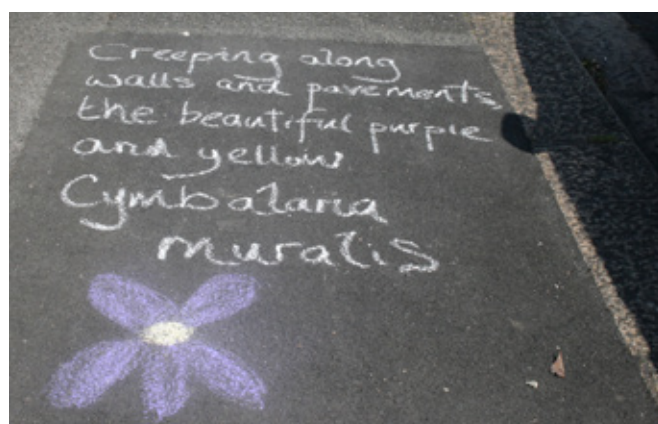 Creeping along
walls and pavements,
the beautiful purple
and yellow
Cymbalaria
muralis